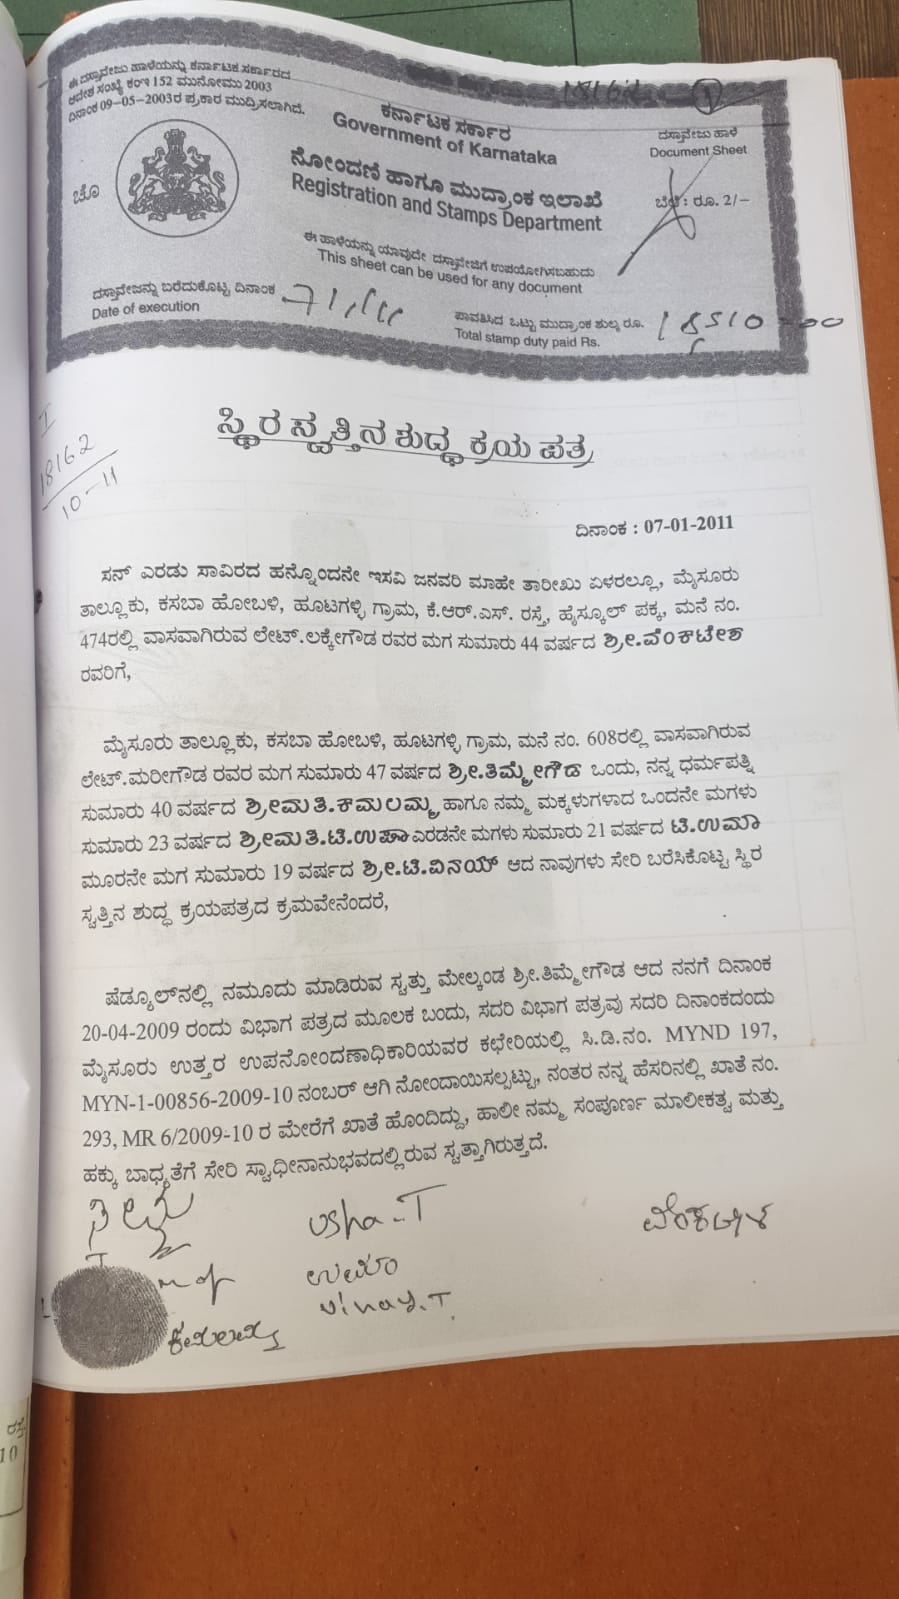 ಈ ದಸ್ತಾವೇಜು ಹಾಳೆಯನ್ನು ಕರ್ನಾಟಕ ಸರ್ಕಾರದ
ಆದೇಶ ಸಂಖ್ಯೆ ಕಂಇ 152 ಮುನೋಮು 2003
ದಿನಾಂಕ 09-05-2003ರ ಪ್ರಕಾರ ಮುದ್ರಿಸಲಾಗಿದೆ.
ಕರ್ನಾಟಕ ಸರ್ಕಾರ
Government of Karnataka
ದಸ್ತಾವೇಜು ಹಾಳೆ
Document Sheet
ನೋಂದಣಿ ಹಾಗೂ ಮುದ್ರಾಂಕ ಇಲಾಖೆ
Registration and Stamps Department
ಬೆಲೆ : ರೂ. 2/-
ಈ ಹಾಳೆಯನ್ನು ಯಾವುದೇ ದಸ್ತಾವೇಜಿಗೆ ಉಪಯೋಗಿಸಬಹುದು
This sheet can be used for any document
ದಸ್ತಾವೇಜನ್ನು ಬರೆದುಕೊಟ್ಟ ದಿನಾಂಕ
Date of execution
ಪಾವತಿಸಿದ ಒಟ್ಟು ಮುದ್ರಾಂಕ ಶುಲ್ಕ ರೂ.
Total stamp duty paid Rs.
I
18162
10-11
ಸ್ಥಿರ ಸ್ವತ್ತಿನ ಶುದ್ಧ ಕ್ರಯ ಪತ್ರ
ದಿನಾಂಕ : 07-01-2011
ಸನ್ ಎರಡು ಸಾವಿರದ ಹನ್ನೊಂದನೇ ಇಸವಿ ಜನವರಿ ಮಾಹೇ ತಾರೀಖು ಏಳರಲ್ಲೂ, ಮೈಸೂರು
ತಾಲ್ಲೂಕು, ಕಸಬಾ ಹೋಬಳಿ, ಹೂಟಗಳ್ಳಿ ಗ್ರಾಮ, ಕೆ.ಆರ್.ಎಸ್. ರಸ್ತೆ, ಹೈಸ್ಕೂಲ್ ಪಕ್ಕ, ಮನೆ ನಂ.
474ರಲ್ಲಿ ವಾಸವಾಗಿರುವ ಲೇಟ್.ಲಕ್ಕೇಗೌಡ ರವರ ಮಗ ಸುಮಾರು 44 ವರ್ಷದ ಶ್ರೀ.ವೆಂಕಟೇಶ
ರವರಿಗೆ,
ಮೈಸೂರು ತಾಲ್ಲೂಕು, ಕಸಬಾ ಹೋಬಳಿ, ಹೂಟಗಳ್ಳಿ ಗ್ರಾಮ, ಮನೆ ನಂ. 608ರಲ್ಲಿ ವಾಸವಾಗಿರುವ
ಲೇಟ್.ಮರೀಗೌಡ ರವರ ಮಗ ಸುಮಾರು 47 ವರ್ಷದ ಶ್ರೀ.ತಿಮ್ಮೇಗೌಡ ಒಂದು, ನನ್ನ ಧರ್ಮಪತ್ನಿ
ಸುಮಾರು 40 ವರ್ಷದ ಶ್ರೀಮತಿ.ಕಮಲಮ್ಮ ಹಾಗೂ ನಮ್ಮ ಮಕ್ಕಳುಗಳಾದ ಒಂದನೇ ಮಗಳು
ಸುಮಾರು 23 ವರ್ಷದ ಶ್ರೀಮತಿ.ಟಿ.ಉಷಾ ಎರಡನೇ ಮಗಳು ಸುಮಾರು 21 ವರ್ಷದ ಟಿ.ಉಮಾ
ಮೂರನೇ ಮಗ ಸುಮಾರು 19 ವರ್ಷದ ಶ್ರೀ.ಟಿ.ವಿನಯ್ ಆದ ನಾವುಗಳು ಸೇರಿ ಬರೆಸಿಕೊಟ್ಟ ಸ್ಥಿರ
ಸ್ವತ್ತಿನ ಶುದ್ಧ ಕ್ರಯಪತ್ರದ ಕ್ರಮವೇನೆಂದರೆ,
ಷೆಡ್ಯೂಲ್‌ನಲ್ಲಿ ನಮೂದು ಮಾಡಿರುವ ಸ್ವತ್ತು ಮೇಲ್ಕಂಡ ಶ್ರೀ.ತಿಮ್ಮೇಗೌಡ ಆದ ನನಗೆ ದಿನಾಂಕ
20-04-2009 ರಂದು ವಿಭಾಗ ಪತ್ರದ ಮೂಲಕ ಬಂದು, ಸದರಿ ವಿಭಾಗ ಪತ್ರವು ಸದರಿ ದಿನಾಂಕದಂದು
ಮೈಸೂರು ಉತ್ತರ ಉಪನೋಂದಣಾಧಿಕಾರಿಯವರ ಕಛೇರಿಯಲ್ಲಿ ಸಿ.ಡಿ.ನಂ. MYND 197,
MYN-1-00856-2009-10 ನಂಬರ್ ಆಗಿ ನೋಂದಾಯಿಸಲ್ಪಟ್ಟು, ನಂತರ ನನ್ನ ಹೆಸರಿನಲ್ಲಿ ಖಾತೆ ನಂ.
293, MR 6/2009-10 ರ ಮೇರೆಗೆ ಖಾತೆ ಹೊಂದಿದ್ದು, ಹಾಲೀ ನಮ್ಮ ಸಂಪೂರ್ಣ ಮಾಲೀಕತ್ವ ಮತ್ತು
ಹಕ್ಕು ಬಾಧ್ಯತೆಗೆ ಸೇರಿ ಸ್ವಾಧೀನಾನುಭವದಲ್ಲಿರುವ ಸ್ವತ್ತಾಗಿರುತ್ತದೆ.
usha-T
ವೆಂಕಟೇಶ
ಉಮಾ
vinay.T.
ಕಮಲಮ್ಮ